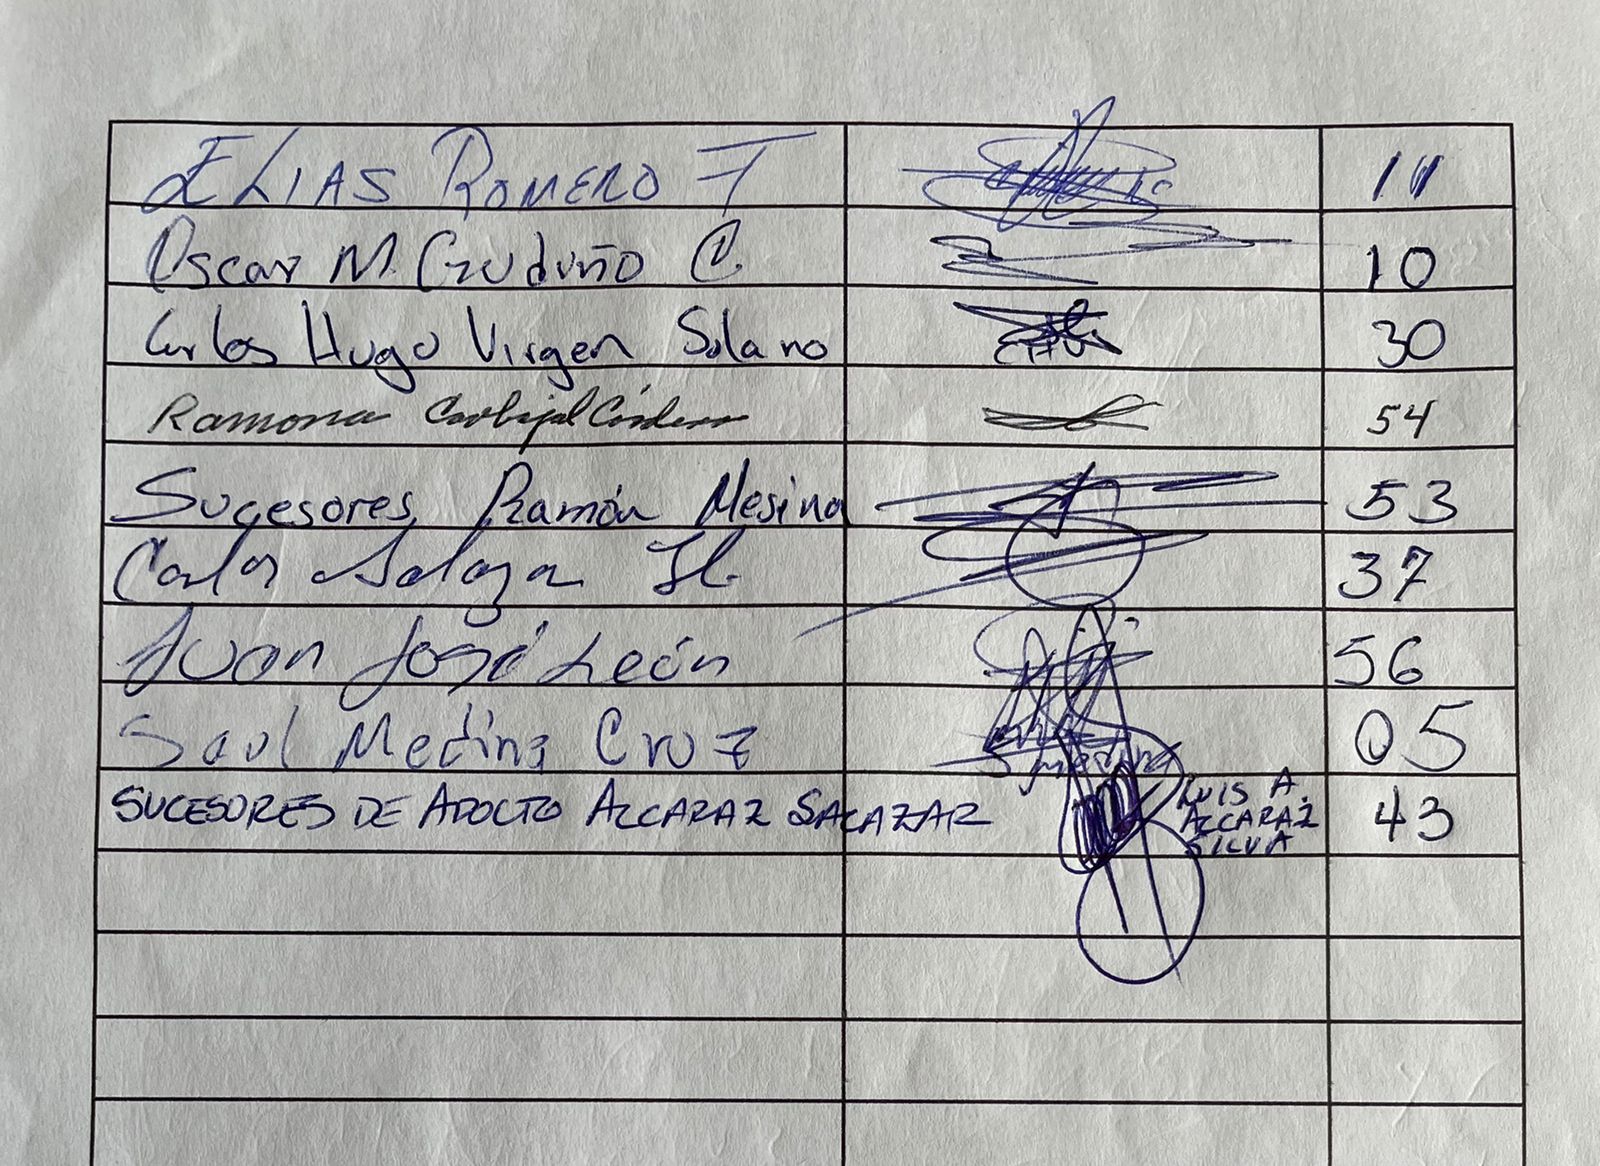 ELIAS ROMERO T 11
Oscar M. Gudiño C. 10
Carlos Hugo Virgen Solano 30
Ramona Carbajal Córdova 54
Sucesores Ramón Mesina 53
Carlos Salazar H. 37
Juan José León 56
Saul Medina Cruz S medina 05
SUCESORES DE ADOLFO ALCARAZ SALAZAR LUIS A. ALCARAZ SILVA 43